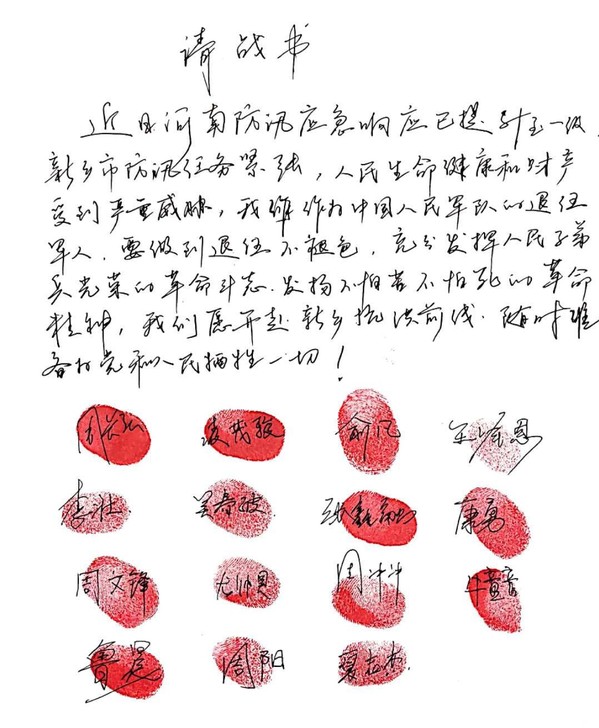 请战书
近日河南防汛应急响应已提升至一级，
新乡市防汛任务紧张，人民生命健康和财产
受到严重威胁，我们作为中国人民军队的退伍
军人，要做到退伍不褪色，充分发挥人民子弟
兵光荣的革命斗志，发扬不怕苦不怕死的革命
精神，我们愿开赴新乡抗洪前线，随时准
备为党和人民牺牲一切！
俞亿
李壮 康高
周文锋 尤帅贝 周牛牛
鲁星 周阳